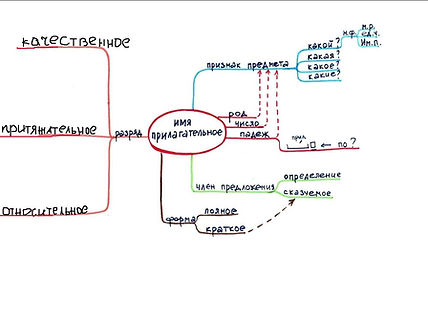 качественное
притяжательное
относительное
разряд
имя
прилагательное
признак предмета
какой?
какая?
какое?
какие?
н.ф.
м.р.
ед.ч.
Им.п.
род
число
падеж
прил.
по?
член предложения
определение
сказуемое
форма
полное
краткое